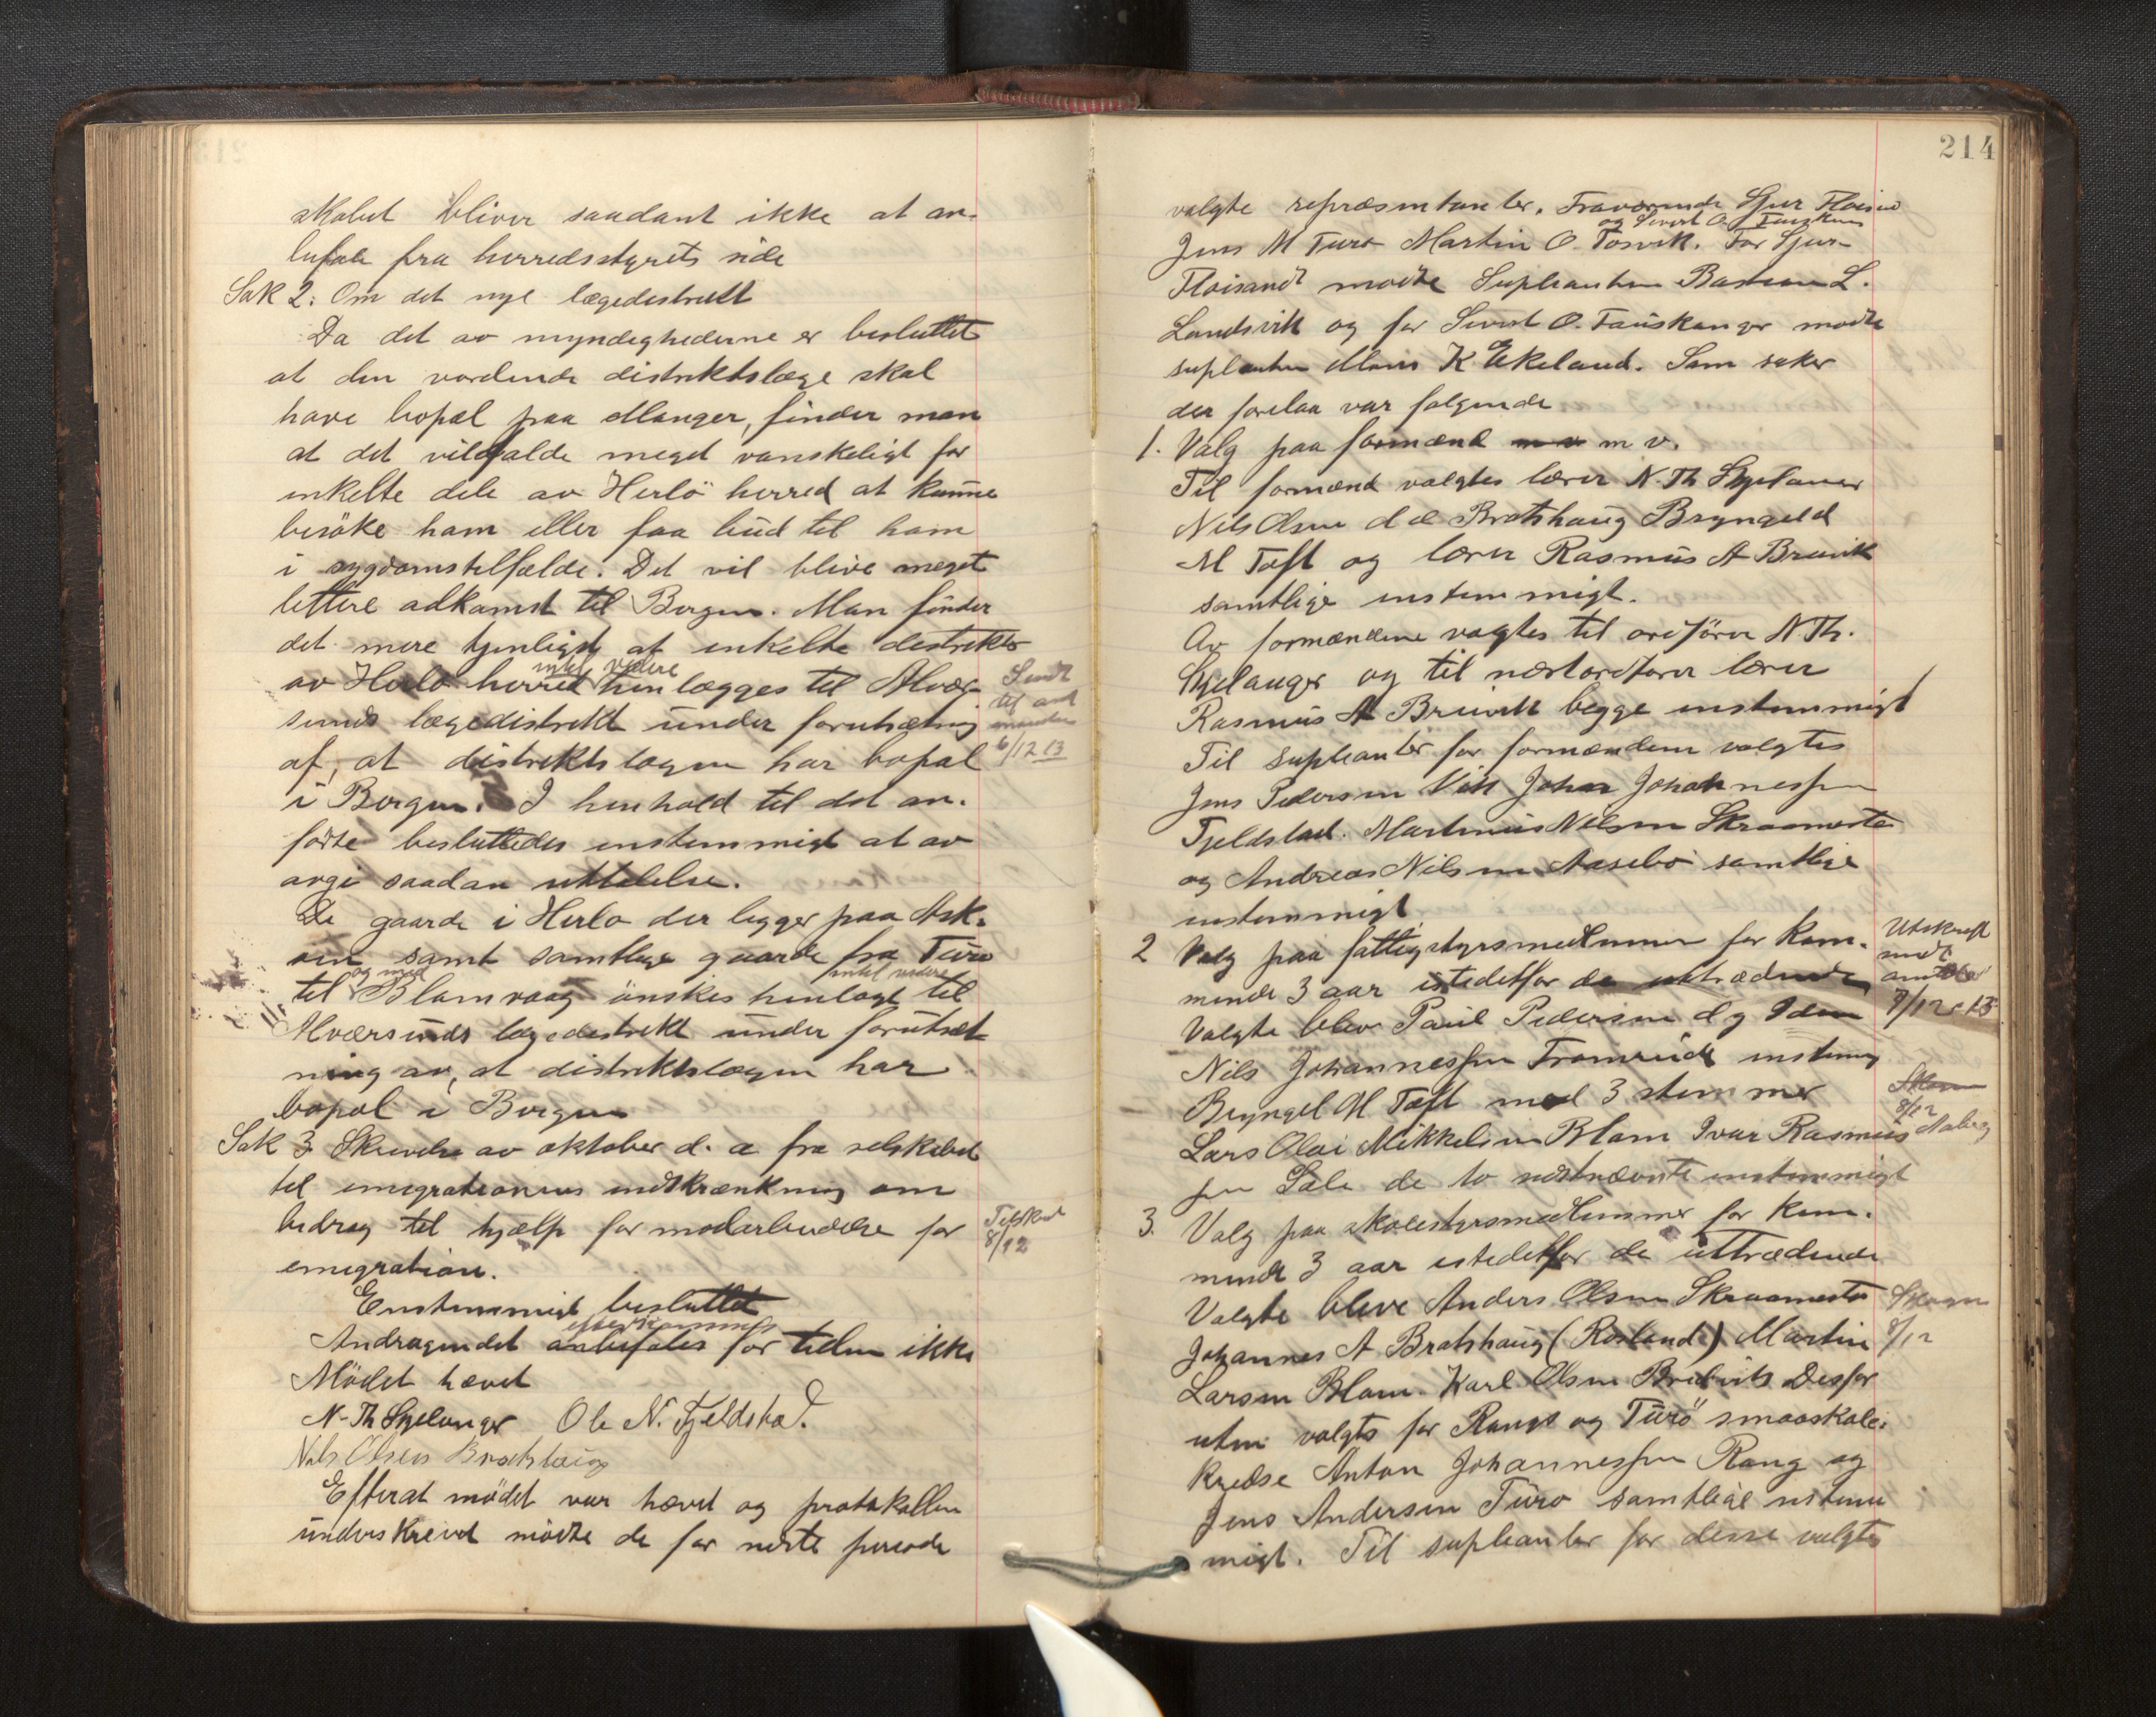 skabet bliver saadant ikke at an-
befale fra herredsstyrets side
Sak 2: Om det nye lægedestrikt
Da det av myndighederne er besluttet
at den vordende distriktslæge skal
have bopæl paa Manger, finder man
at det vil falde meget vanskeligt for
enkelte dele av Herlö herred at kunne
besöke ham eller faa bud til ham
i sygdomstilfælde. Det vil blive meget
lettere adkomst til Bergen. Man finder
det mere tjenligst at enkelte destrikter
intil videre
av Herlö herred henlægges til Alvær-
sunds lægedistrikt under forutsætning
af, at distriktslægen har bopæl
i Bergen. I henhold til det an-
förte besluttedes enstemmigt at av
avgi saadan uttalelse.
De gaarde i Herlö der ligger paa Ask-
öen samt samtlige gaarde fra Turö
og med intil videre
til Blomvaag önskes henlagt til
Alværsunds lægedestrikt under forutsæt
ning av, at distriktslægen har
bopæl i Bergen
Sendt
til amt
manden
6/12 13
Sak 3 Skrivelse av oktober d. a fra selskabet
til emigrationens indskrænkning om
bidrag til hjælp for modarbeidelse for
emigration.
Tilskrevet
8/12
Enstemmigt besluttet
efterkommes
Andragendet anbefales for tiden ikke
Mödet hævet
N-Th Skjelanger Ole N. Fjeldstad.
Nils Olsen Bratshaug
Efterat mödet var hævet og protokollen
underskrevet mödte de for neste periode
214
valgte repræsentanter. Fraværende Sjur Floisand
og Sivert O. Fauskanger
Jens M Turö Martin O. Tosvik. For Sjur
Floisand mödte Supleanten L.
Landsvik og for Sivert O. Fauskanger mödte
suplanten Mons K Ekeland. Som saker
der forelaa var folgende
1. Valg paa formænd m v m v.
Til formænd valgtes lærer N. Th Skjelanger
Nils Olsen d æ Bratshaug Bryngeld
M Toft og lærer Rasmus A Breivik
samtlige enstemmigt.
Av formændene valgtes til ordförer N. Th.
Skjelanger og til næstordförer lærer
Rasmus A Breivik begge enstemmigt
Til supleanter for formændene valgtes
Jens Pedersen Vik Johan Johannessen
Fjeldstad. Martinus Nilsen Skraamestø
og Andreas Nilsen Aasebö samtlige
enstemmigt
2 Valg paa fattigstyrsmedlemmer for kom-
mende 3 aar istedetfor de uttrædende
Valgte blev Paul Pedersen d y
Nils Johannessen Fromreide enstemig
Bryngel M Toft med 3 stemmer
Lars Olai Mikkelsen Blom Ivar Rasmus
sen Sæle de to sidstnævnte enstemmigt
Utskrift
sendt
amtet
8/12 - 13
8/12
3. Valg paa skolestyrsmedlemmer for kom-
mende 3 aar istedetfor de uttrædende
Valgte bleve Anders Olsen Skraamestø
Johannes A Bratshaug (Rosland) Martin
Larsen Blom. Karl Olsen Breivik Desfor
uten valgtes for Rangs og Turö smaaskole-
kredse Anton Johannessen Rong og
Jens Andersen Turö samtlige enstem
migt. Til supleanter for desse valgtes
8/12